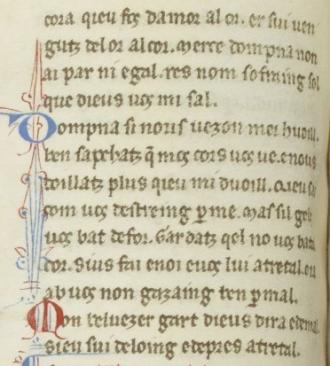 cora qieu fez damor al cor. er sui uen
gutz del or al cor. merce dompna non
ai par ni egal. res nom sofraing sol
que dieus uos mi sal.
Dompna si nous uezon mei huoill.
ben sapchatz q̃ mos cors uos ue. enous
doillatz plus qieu mi duoill. qieu sai
com uos destreing ꝑ me. mas sil gelos
uos bat defor. gardatz qel no uos bata
cor. sius fai enoi euos lui atretal. eia
ab uos non gazaing ben ꝑ mal.
Mon beluezer gart dieus dira edemal
sieu sui deloing edepres atretal.